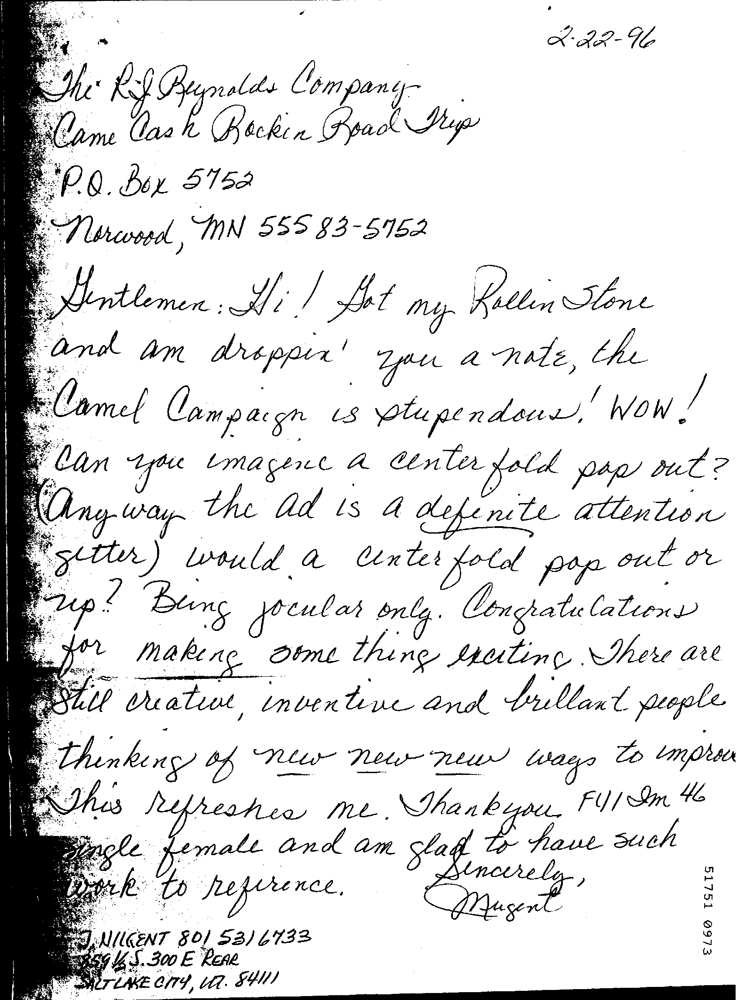 2-22-96
The RJ Reynolds Company
Came Cash Rockin Road Trip
P.O. Box 5752
Norwood, MN 55583-5752
Gentlemen: Hi! Got my Rollin Stone
and am droppin' you a note, the
Camel Campaign is stupendous! WOW!
Can you imagine a centerfold pop out?
(Anyway the ad is a definite attention
getter) would a centerfold pop out or
up? Being jocular only. Congratulations
for making something exciting. There are
still creative, inventive and brillant people
thinking of new new new ways to improve
This refreshes me. Thankyou. FYI Im 46
single female and am glad to have such
work to reference.
Sincerely,
J. 801 5316733
859 1/2 S. 300 E REAR
SALT LAKE CITY, UT. 84111
51751 0973